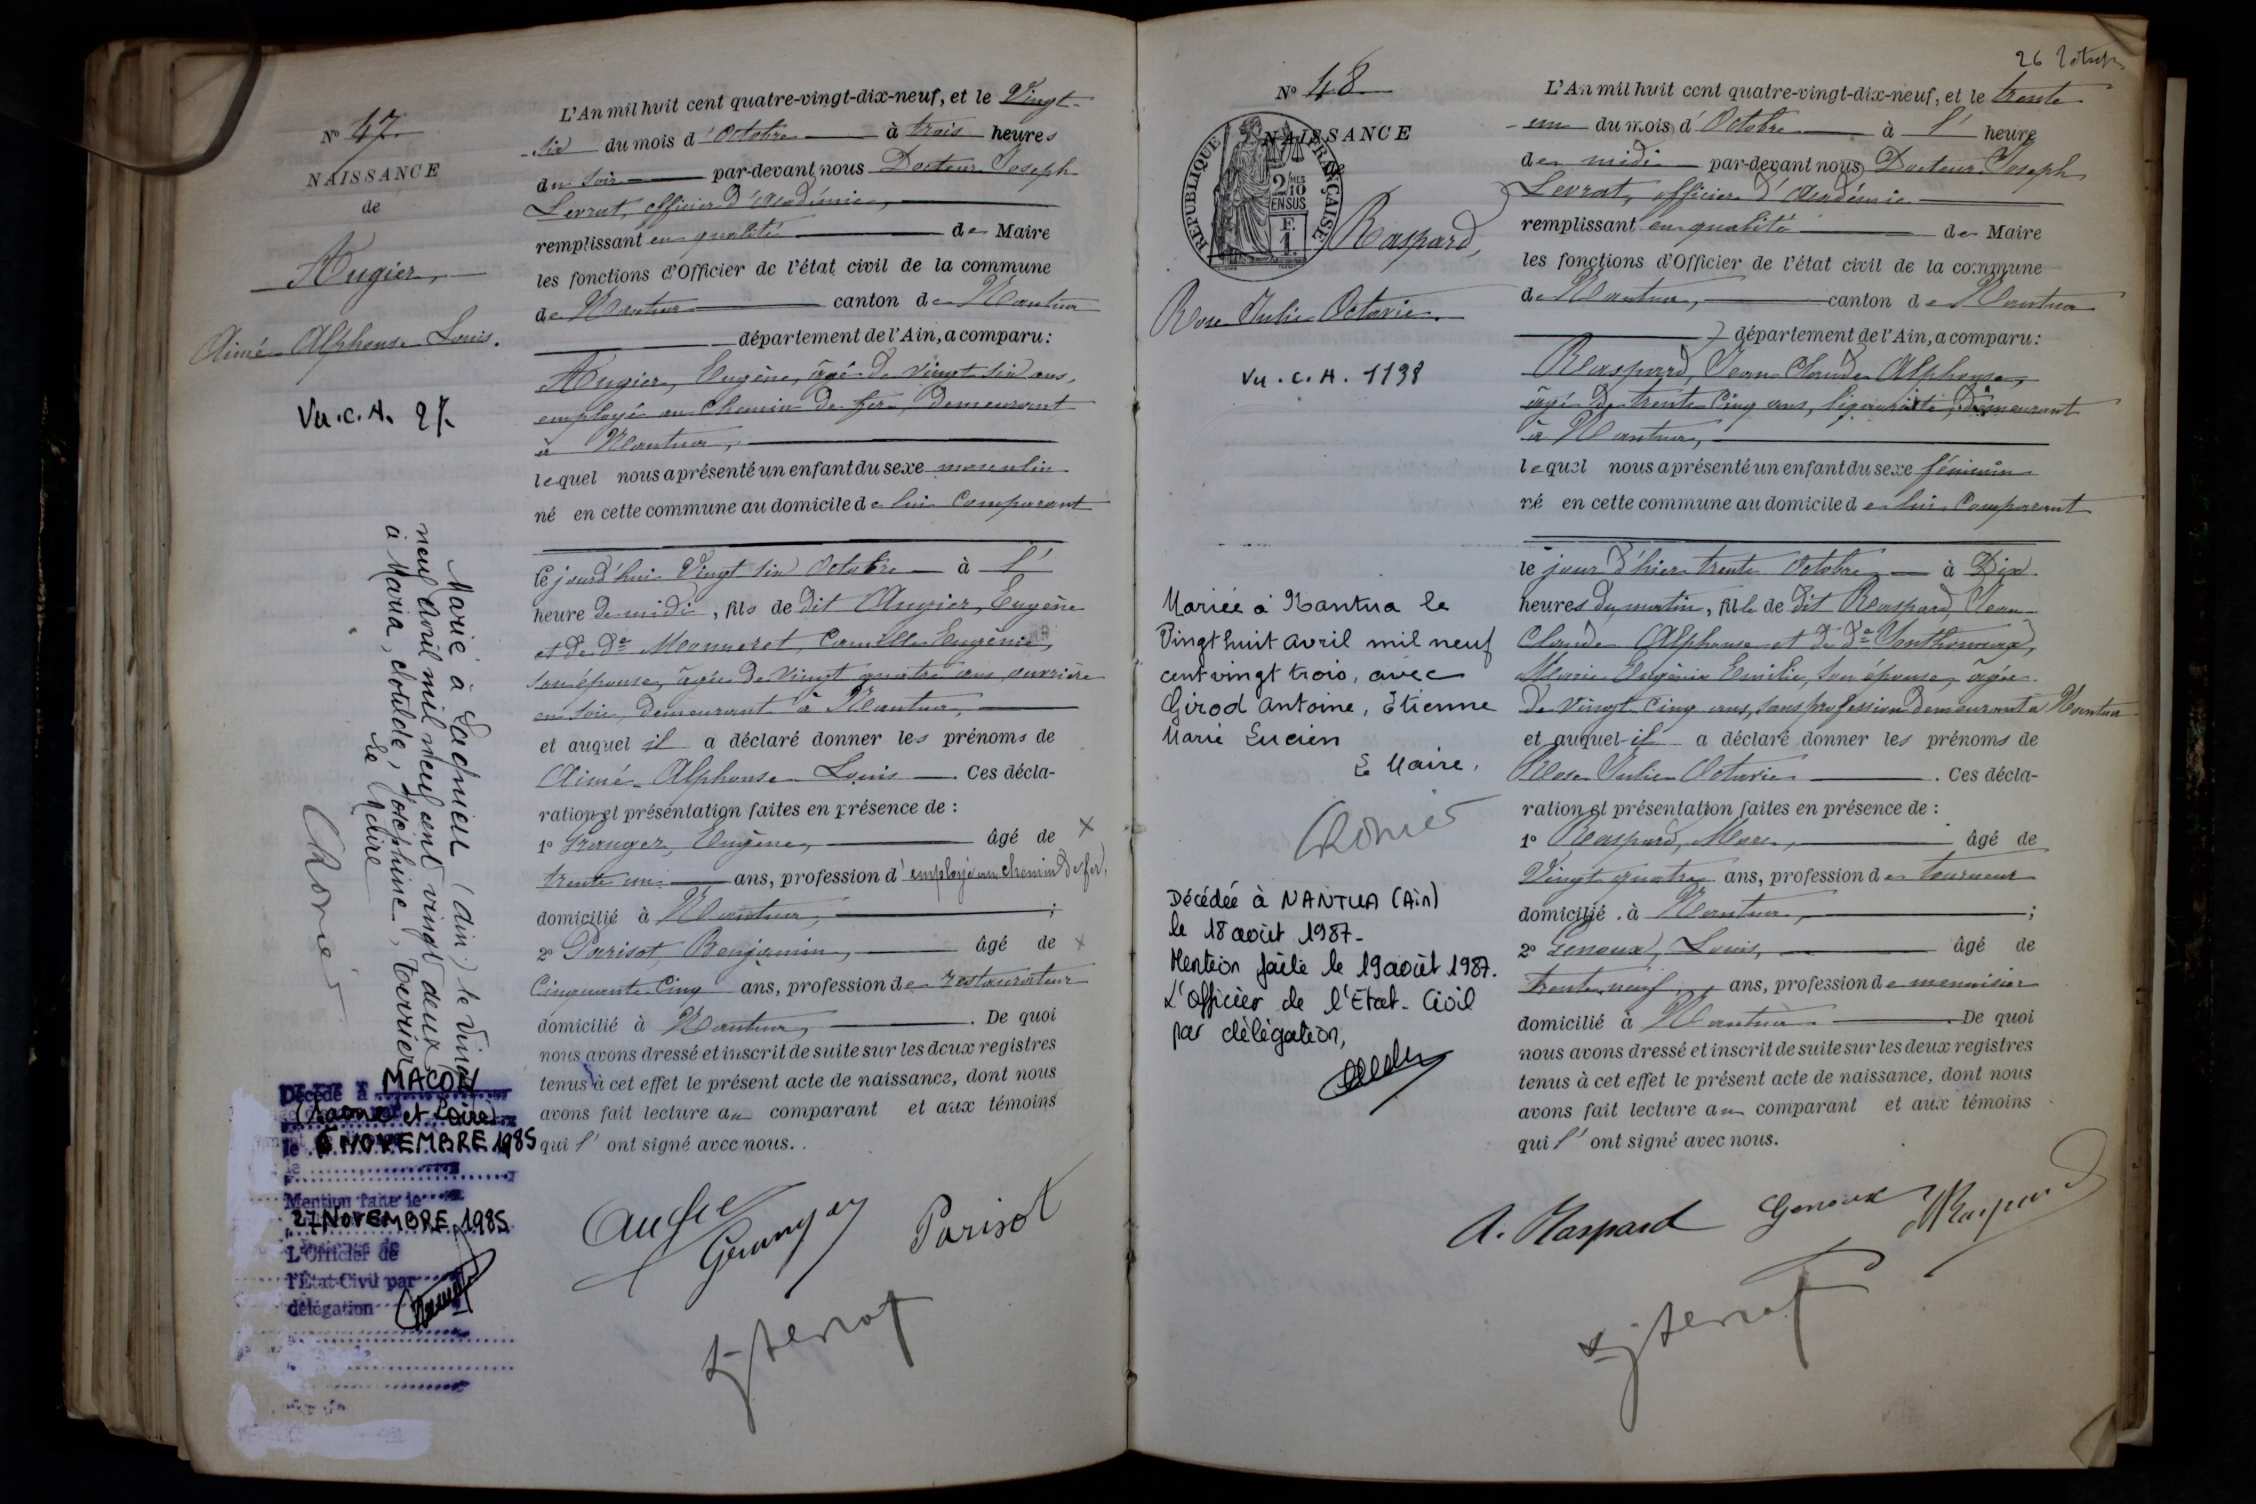 N° 47
NAISSANCE
de
Augier,
Aimé Alphonse Louis.
Vu. c. H. 27.
Marié à Lagnieu (Ain) le vingt
neuf avril mil neuf cent vingt deux
à Maria, Clotilde, Joséphine, Terrier
Le Maire
Décédé à MACON
(Saone et Loire)
le 6 NOVEMBRE 1985
Mention faite le
27 NOVEMBRE 1985
L'Officier de
l'État-Civil par
délégation
L'An mil huit cent quatre-vingt-dix-neuf, et le Vingt-
-six du mois d'Octobre à trois heures
du soir par-devant nous Docteur Joseph
Levrat, officier d'Académie,
remplissant en qualité de Maire
les fonctions d'Officier de l'état civil de la commune
de Nantua canton de Nantua
département de l'Ain, a comparu:
Augier, Eugène, âgé de vingt six ans,
employé au chemin de fer, demeurant
à Nantua,
lequel nous a présenté un enfant du sexe masculin
né en cette commune au domicile de lui comparant
ce jourd'hui vingt six Octobre à l'
heure de midi, fils de dit Augier, Eugène
et de De Monneret, Camille Eugénie,
son épouse, âgée de vingt quatre ans, ouvrière
en soie, demeurant à Nantua,
et auquel il a déclaré donner les prénoms de
Aimé Alphonse Louis. Ces décla-
ration et présentation faites en présence de :
1° Granger, Eugène, âgé de
trente un ans, profession d'employé au chemin de fer,
domicilié à Nantua, ;
2° Parisot, Benjamin, âgé de
Cinquante Cinq ans, profession de restaurateur
domicilié à Nantua, . De quoi
nous avons dressé et inscrit de suite sur les deux registres
tenus à cet effet le présent acte de naissance, dont nous
avons fait lecture au comparant et aux témoins
qui l'ont signé avec nous.
Granger
Parisot
26 8bre
N° 48
NAISSANCE
de
RÉPUBLIQUE FRANÇAISE
2 MES
10
EN SUS
F.
1.
Raspard,
Rose Julie Octavie.
Vu. c. H. 1138
Mariée à Nantua le
Vingt huit avril mil neuf
cent vingt trois, avec
Girod Antoine, Étienne
Marie Lucien
Le Maire,
Décédée à NANTUA (Ain)
le 18 août 1987-
Mention faite le 19 août 1987.
L'Officier de l'Etat-Civil
par délégation,
L'An mil huit cent quatre-vingt-dix-neuf, et le trente
-un du mois d'Octobre à l' heure
de midi par-devant nous Docteur Joseph
Levrat, officier d'Académie
remplissant en qualité de Maire
les fonctions d'Officier de l'état civil de la commune
de Nantua, canton de Nantua
département de l'Ain, a comparu:
Raspard, Jean Claude Alphonse,
âgé de trente cinq ans, liquoriste, demeurant
à Nantua,
lequel nous a présenté un enfant du sexe féminin
né en cette commune au domicile de lui comparant
le jour d'hier trente Octobre à Dix
heures du matin, fille de dit Raspard, Jean-
Claude Alphonse et de De
Marie Eugénie Emilie, son épouse, âgée
de vingt cinq ans, sans profession demeurant à Nantua
et auquel il a déclaré donner les prénoms de
Rose Julie Octavie . Ces décla-
ration et présentation faites en présence de :
1° Raspard, Marc, âgé de
Vingt quatre ans, profession de tourneur
domicilié à Nantua, ;
2° Genoux, Louis, âgé de
trente neuf ans, profession de menuisier
domicilié à Nantua. De quoi
nous avons dressé et inscrit de suite sur les deux registres
tenus à cet effet le présent acte de naissance, dont nous
avons fait lecture au comparant et aux témoins
qui l'ont signé avec nous.
A. Raspard Genoux M Raspard